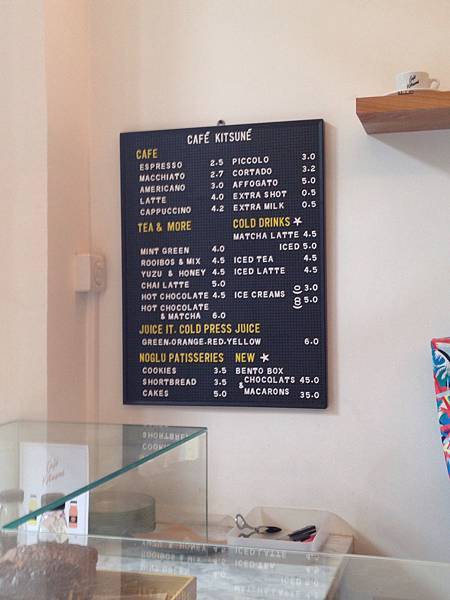 CAFÉ KITSUNÉ
CAFE
ESPRESSO 2.5
MACCHIATO 2.7
AMERICANO 3.0
LATTE 4.0
CAPPUCCINO 4.2
PICCOLO 3.0
CORTADO 3.2
AFFOGATO 5.0
EXTRA SHOT 0.5
EXTRA MILK 0.5
TEA & MORE
MINT GREEN 4.0
ROOIBOS & MIX 4.5
YUZU & HONEY 4.5
CHAI LATTE 5.0
HOT CHOCOLATE 4.5
HOT CHOCOLATE
& MATCHA 6.0
COLD DRINKS
MATCHA LATTE 4.5
ICED 5.0
ICED TEA 4.5
ICED LATTE 4.5
ICE CREAMS 3.0
5.0
JUICE IT. COLD PRESS JUICE
GREEN.ORANGE.RED.YELLOW 6.0
NOGLU PATISSERIES
COOKIES 3.5
SHORTBREAD 3.5
CAKES 5.0
NEW
BENTO BOX
& CHOCOLATS 45.0
MACARONS 35.0
Café
Kitsuné